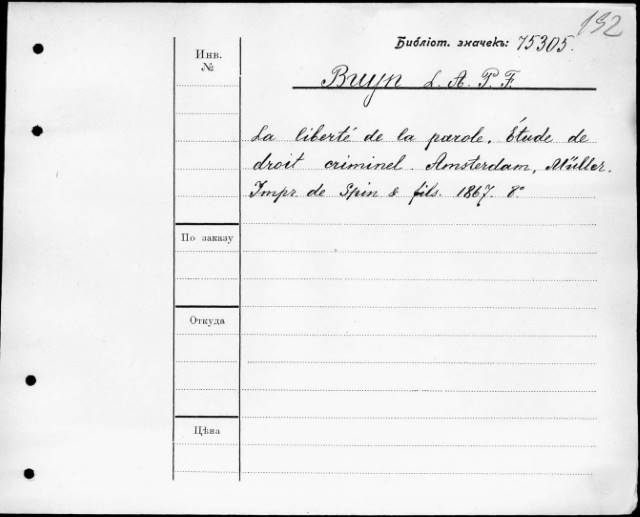 192
Библіот. значекъ: 75305.
Инв.
№
Bruyn L. A. P. F.
La liberté de la parole. Étude de
droit criminel. Amsterdam, Müller.
Impr. de Spin & fils. 1867. 8°
По заказу
Откуда
Цѣна